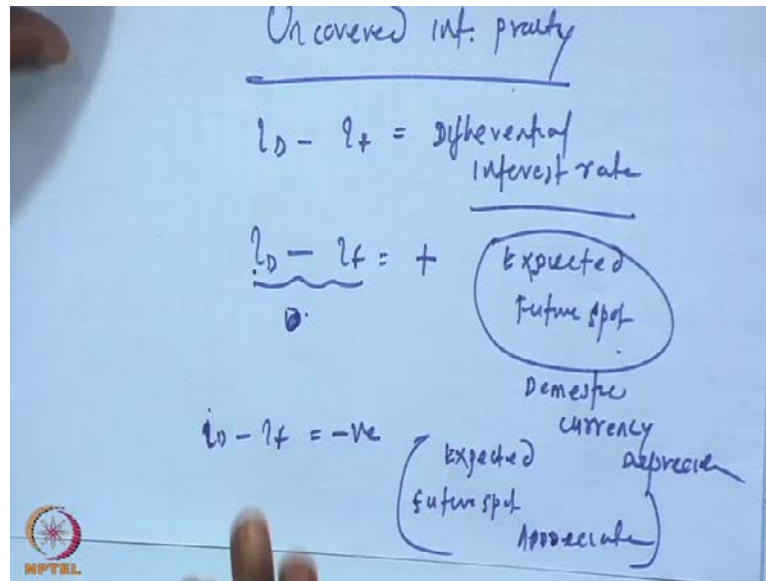 Uncovered int. praity
i_D - i_f = Differential
interest rate
i_D - i_f = +
Expected
Future spot
Domestic
currency
i_D - i_f = -ve
Expected
future spot
Appreciate
NPTEL